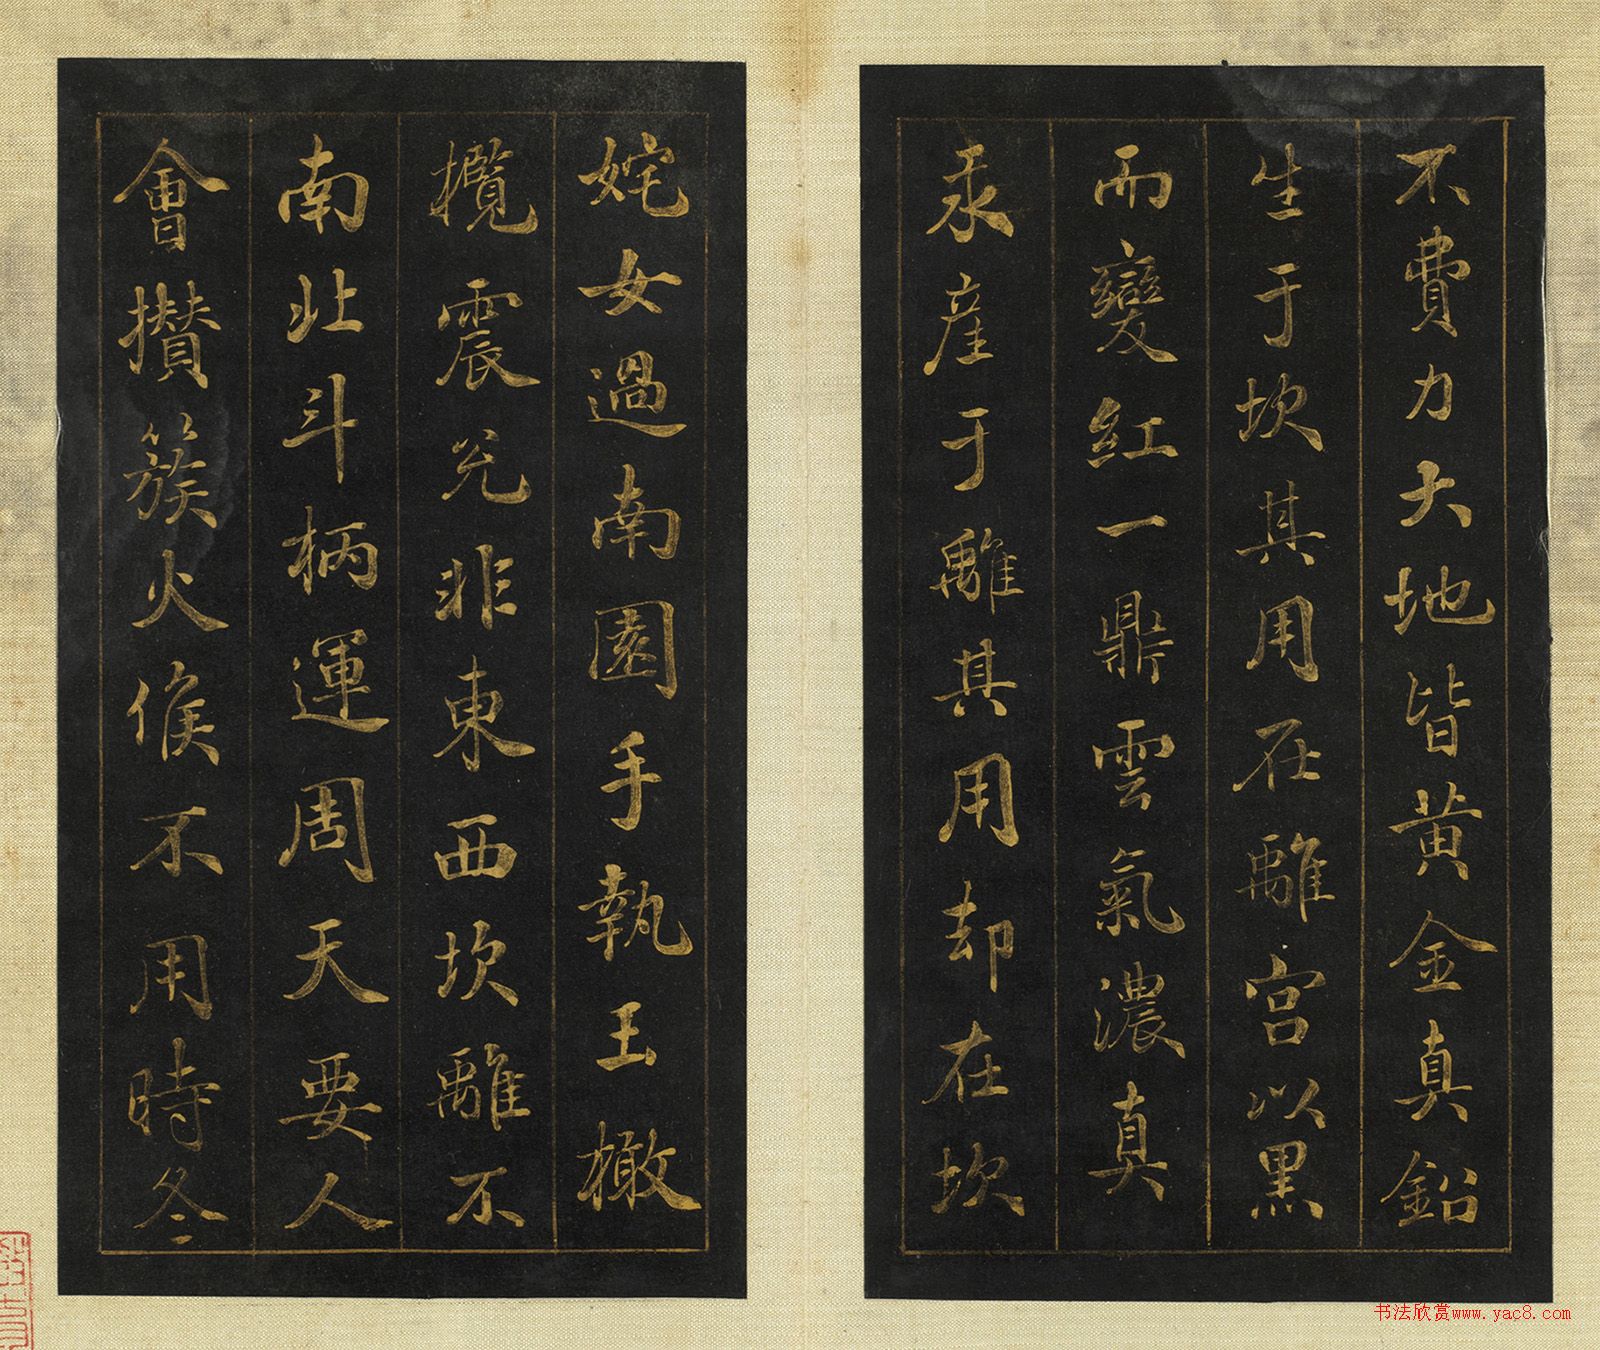 不費力大地皆黄金真鉛
生于坎其用在離宫以黑
而變紅一鼎雲氣濃真
汞産于離其用却在坎
姹女過南園手執玉橄
欖震兑非東西坎離不
南北斗柄運周天要人
會攅簇火候不用時冬
书法欣赏www.yac8.com